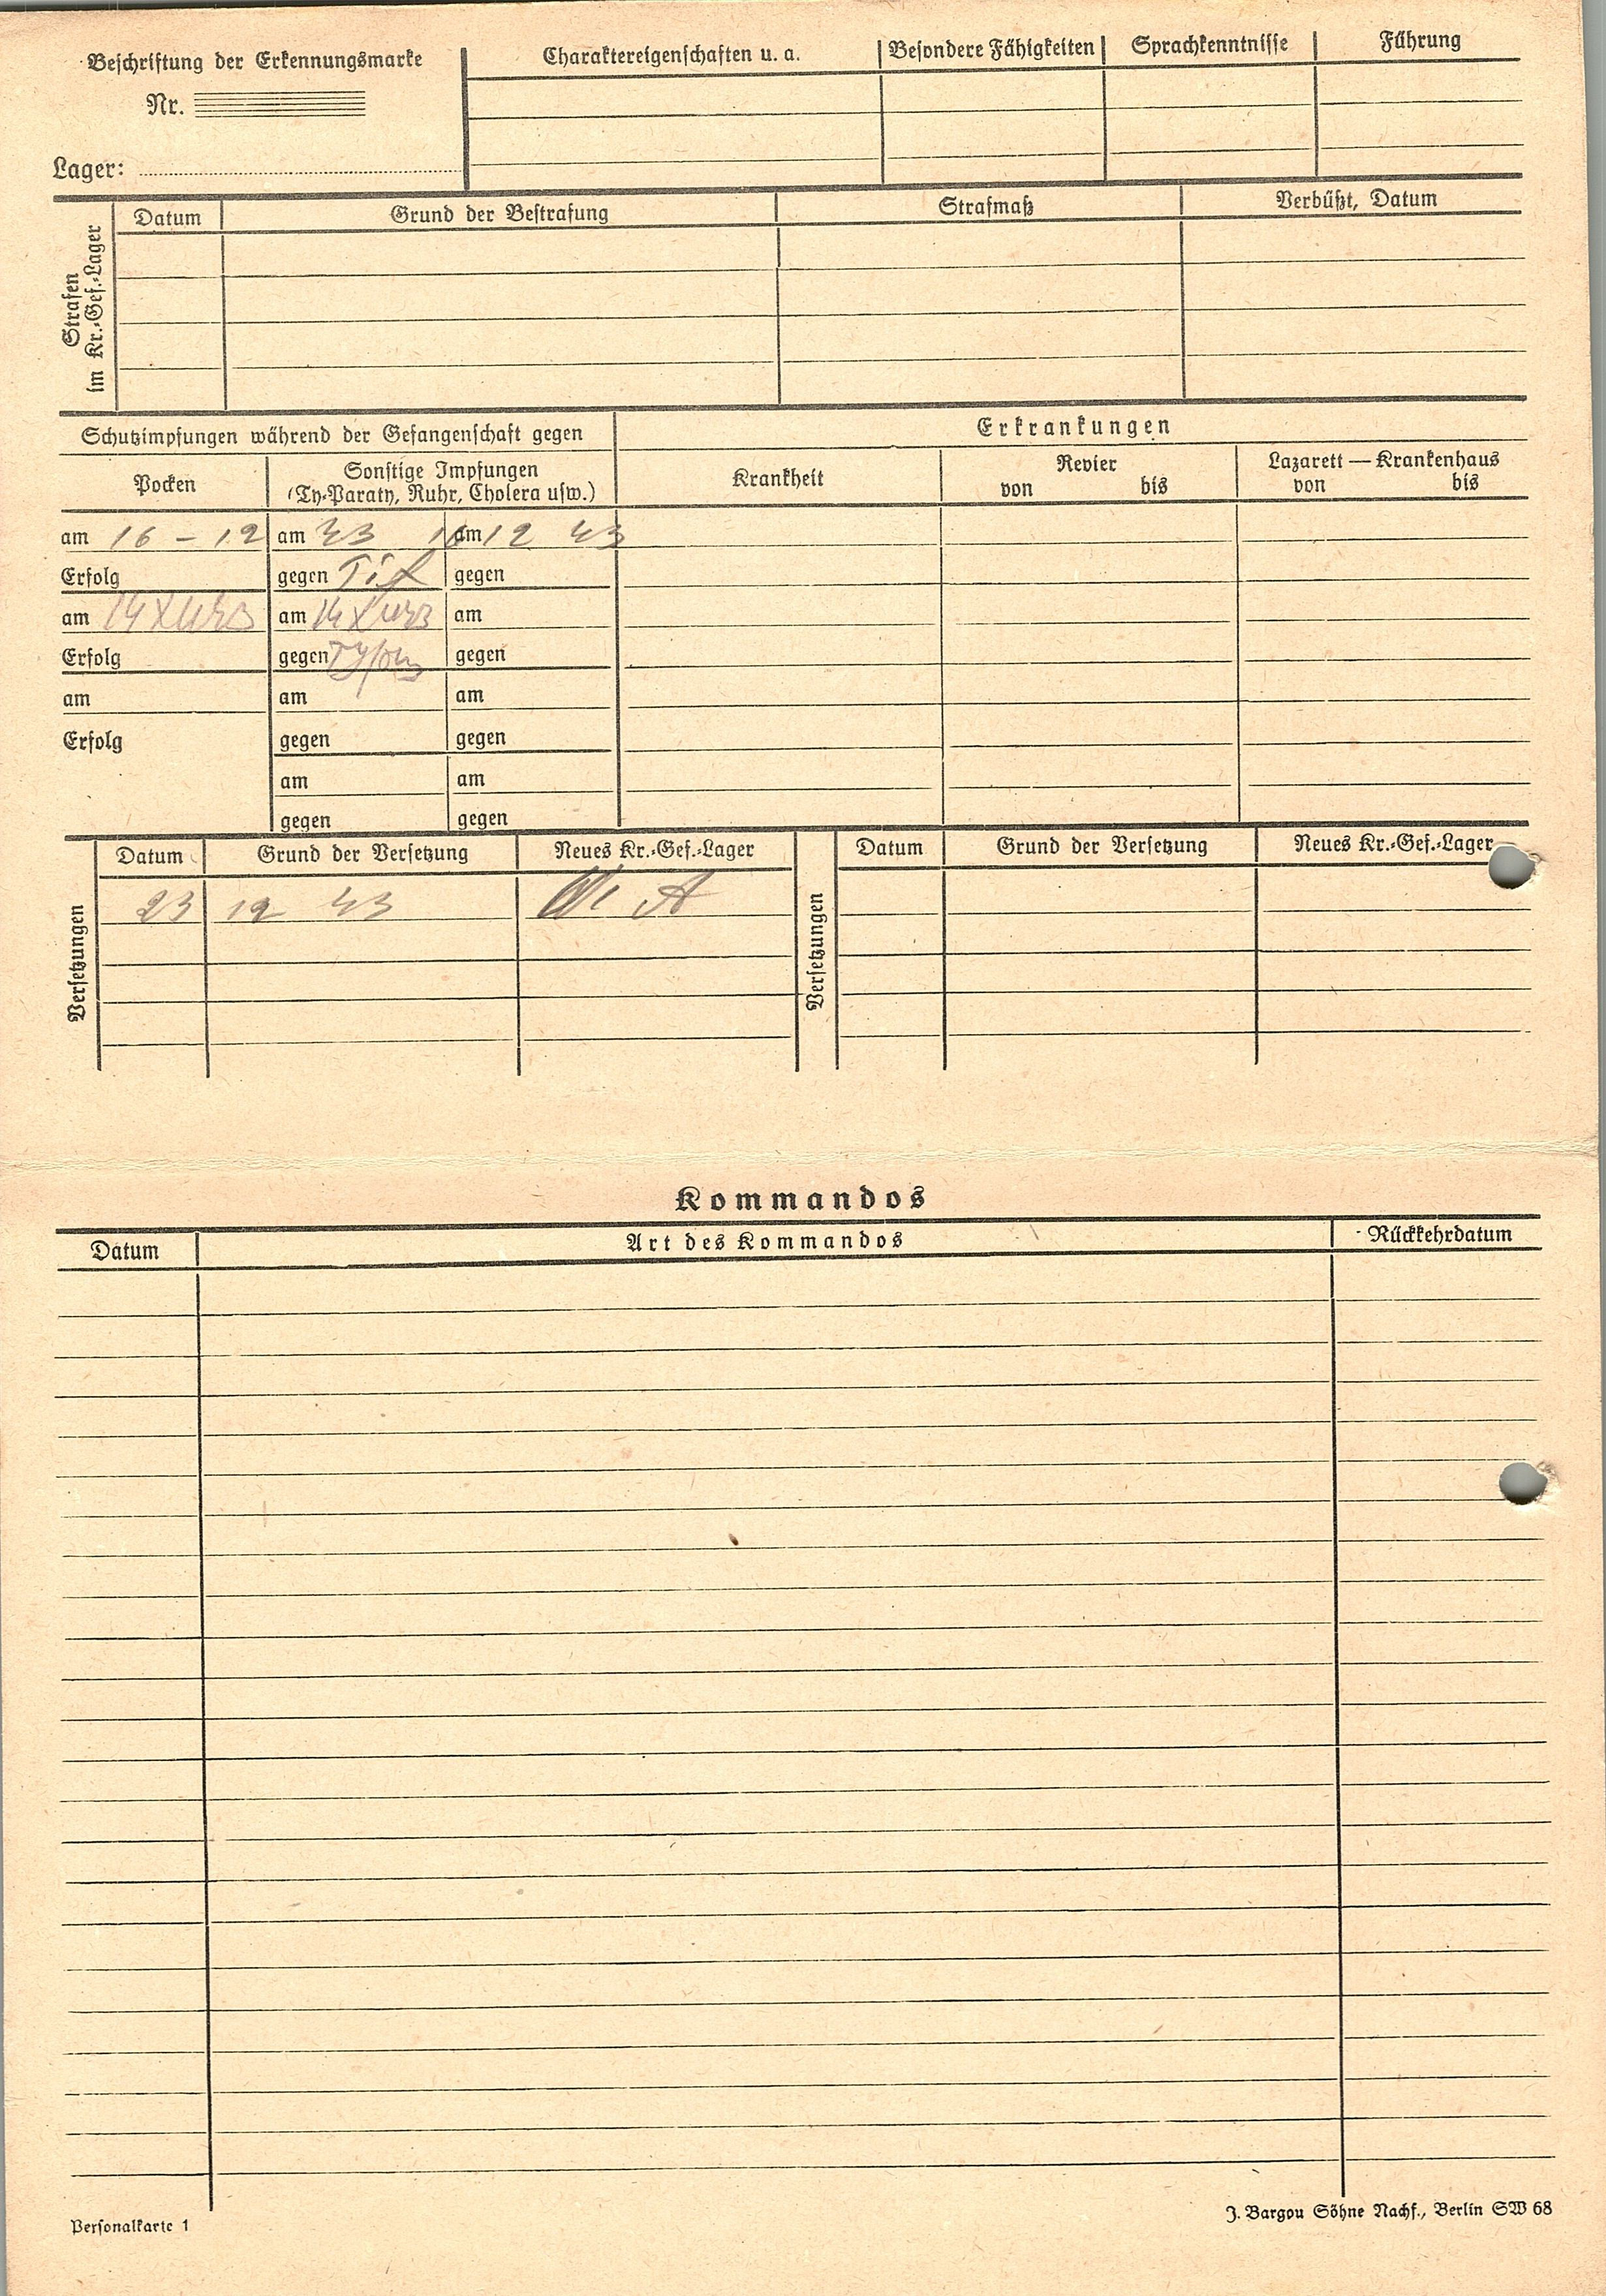 Beschriftung der Erkennungsmarke
Nr.
Lager:
Charaktereigenschaften u. a. Besondere Fähigkeiten Sprachkenntnisse Führung
Strafen
im Kr.-Gef.-Lager
Datum Grund der Bestrafung Strafmaß Verbüßt, Datum
Schutzimpfungen während der Gefangenschaft gegen Erkrankungen
Pocken Sonstige Impfungen
(Ty-Paraty, Ruhr, Cholera usw.)
Krankheit Revier Lazarett — Krankenhaus
von bis von bis
am 16 - 12 am 43 16 am 12 43
Erfolg gegen Tif gegen
am 14 X am 14 X am
Erfolg gegen gegen
am am am
Erfolg gegen gegen
am am
gegen gegen
Versetzungen
Datum Grund der Versetzung Neues Kr.-Gef.-Lager
23 12 43 A
Versetzungen
Datum Grund der Versetzung Neues Kr.-Gef.-Lager
Kommandos
Datum Art des Kommandos Rückkehrdatum
Personalkarte 1
J. Bargou Söhne Nachf., Berlin SW 68